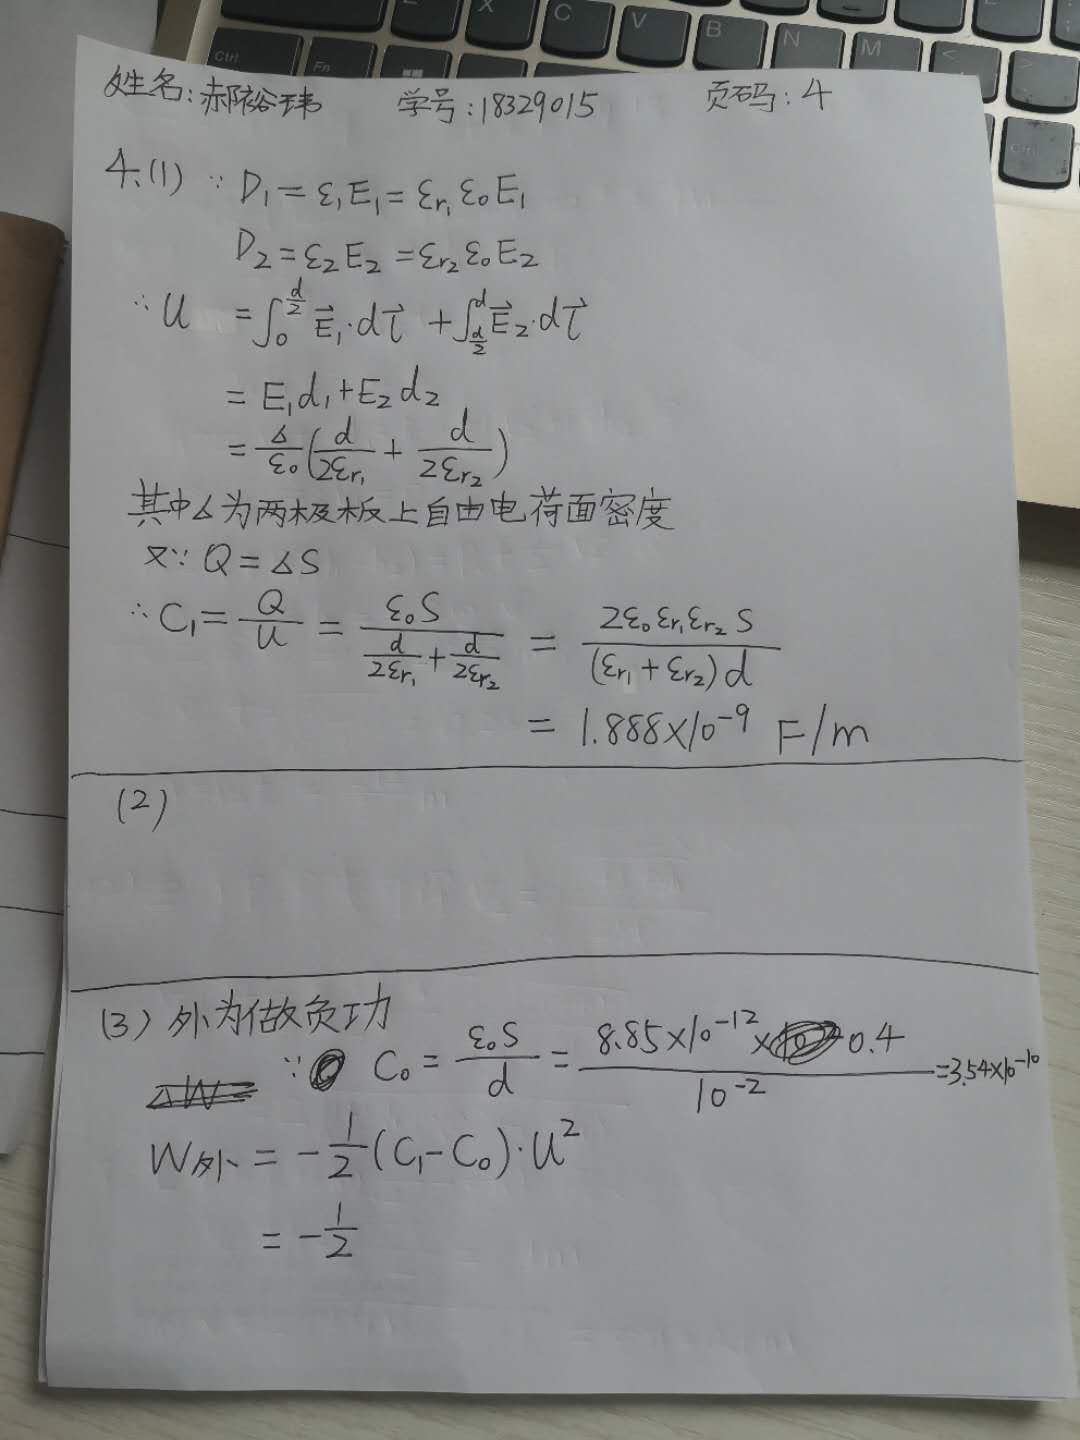 Ctrl Fn Z X C V B N M < >
姓名:郝裕玮 学号:18329015 页码:4
4.(1) ∵ D₁=ε₁E₁=εr₁ε₀E₁
D₂=ε₂E₂=εr₂ε₀E₂
∴ U =∫₀^(d/2) E⃗₁·dl⃗ +∫_(d/2)^d E⃗₂·dl⃗
= E₁d₁+E₂d₂
= δ/ε₀(d/2εr₁ + d/2εr₂)
其中δ为两极板上自由电荷面密度
又∵ Q=δS
∴ C₁=Q/U = ε₀S/(d/2εr₁+d/2εr₂) = 2ε₀εr₁εr₂S/(εr₁+εr₂)d
= 1.888×10⁻⁹ F/m
(2)
(3) 外力做负功
∵ C₀=ε₀S/d=8.85×10⁻¹²×0.4/10⁻²=3.54×10⁻¹⁰
W外=-1/2(C₁-C₀)·U²
=-1/2